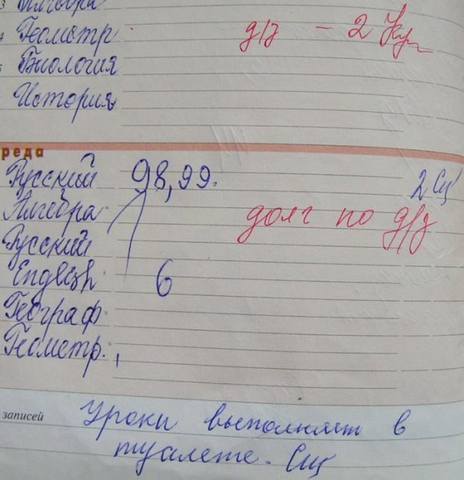 3 Алгебра
4 Геометр. д/з – 2
5 Биология
История
реда
Русский 98,99. 2 Сщ
Алгебра долг по д/з
Русский
English 6
Географ.
Геометр.
записей Уроки выполняет в
туалете. Сщ